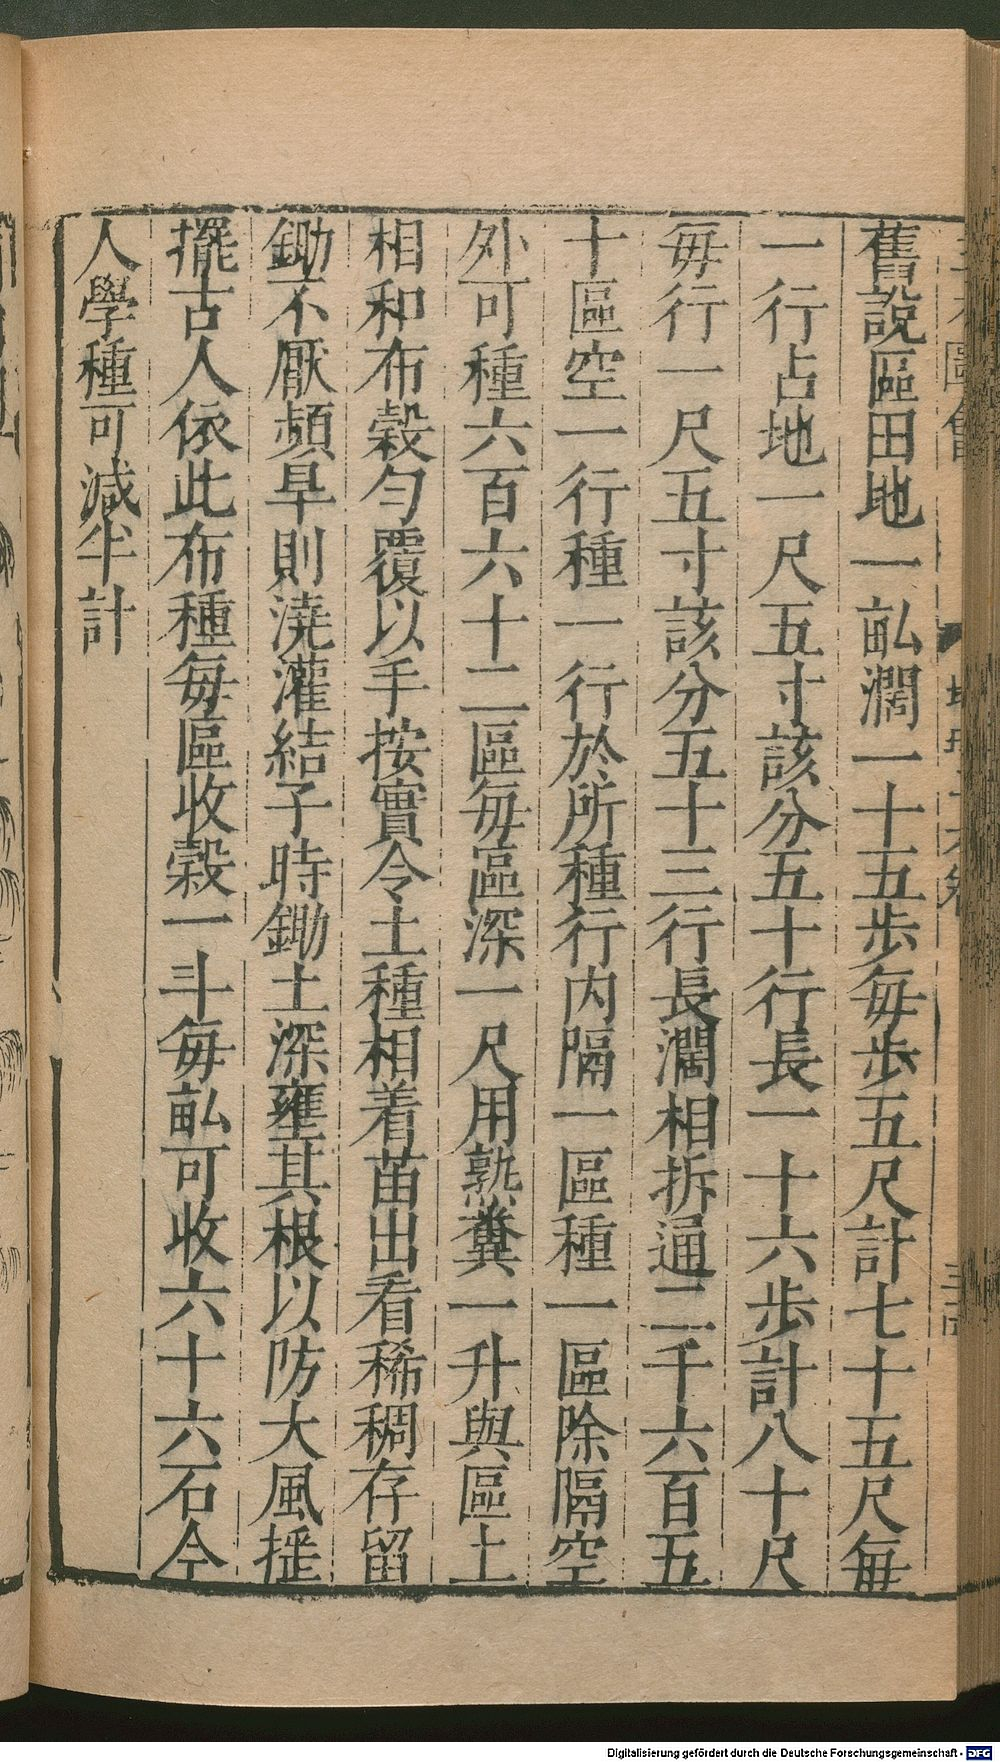 舊說區田地一畆濶一十五歩每歩五尺計七十五尺每
一行占地一尺五寸該分五十行長一十六歩計八十尺
每行一尺五寸該分五十三行長濶相拆通二千六百五
十區空一行種一行於所種行内隔一區種一區除隔空
外可種六百六十二區每區深一尺用熟糞一升與區土
相和布穀匀覆以手按實令土種相着苗出看稀稠存留
鋤不厭頻旱則澆灌結子時鋤土深壅其根以防大風揺
擺古人依此布種每區收穀一斗每畆可收六十六石今
人學種可減半計
Digitalisierung gefördert durch die Deutsche Forschungsgemeinschaft - DFG